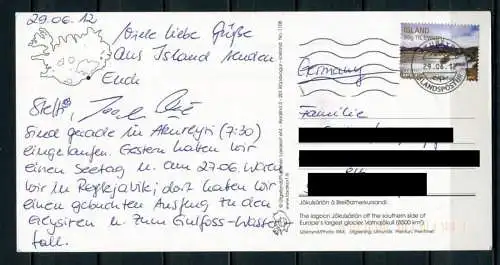 29.06.12
Viele liebe Grüße
aus Island senden
Euch
Steffi,
Sind gerade in Akureyri (7:30)
eingelaufen. Gestern hatten wir
einen Seetag u. am 27.06. waren
wir in Reykjavik; dort hatten wir
einen gebuchten Ausflug zu den
Geysiren u. zum Gulfoss-Wasser-
fall.
ÍSLAND
29.06.12
ÍSLANDSPÓSTUR
Germany
Familie
Jökulsárlón á Breiðamerkursandi.
The lagoon Jökulsárlón off the southern side of
Europe's largest glacier Vatnajökull (8500 km²).